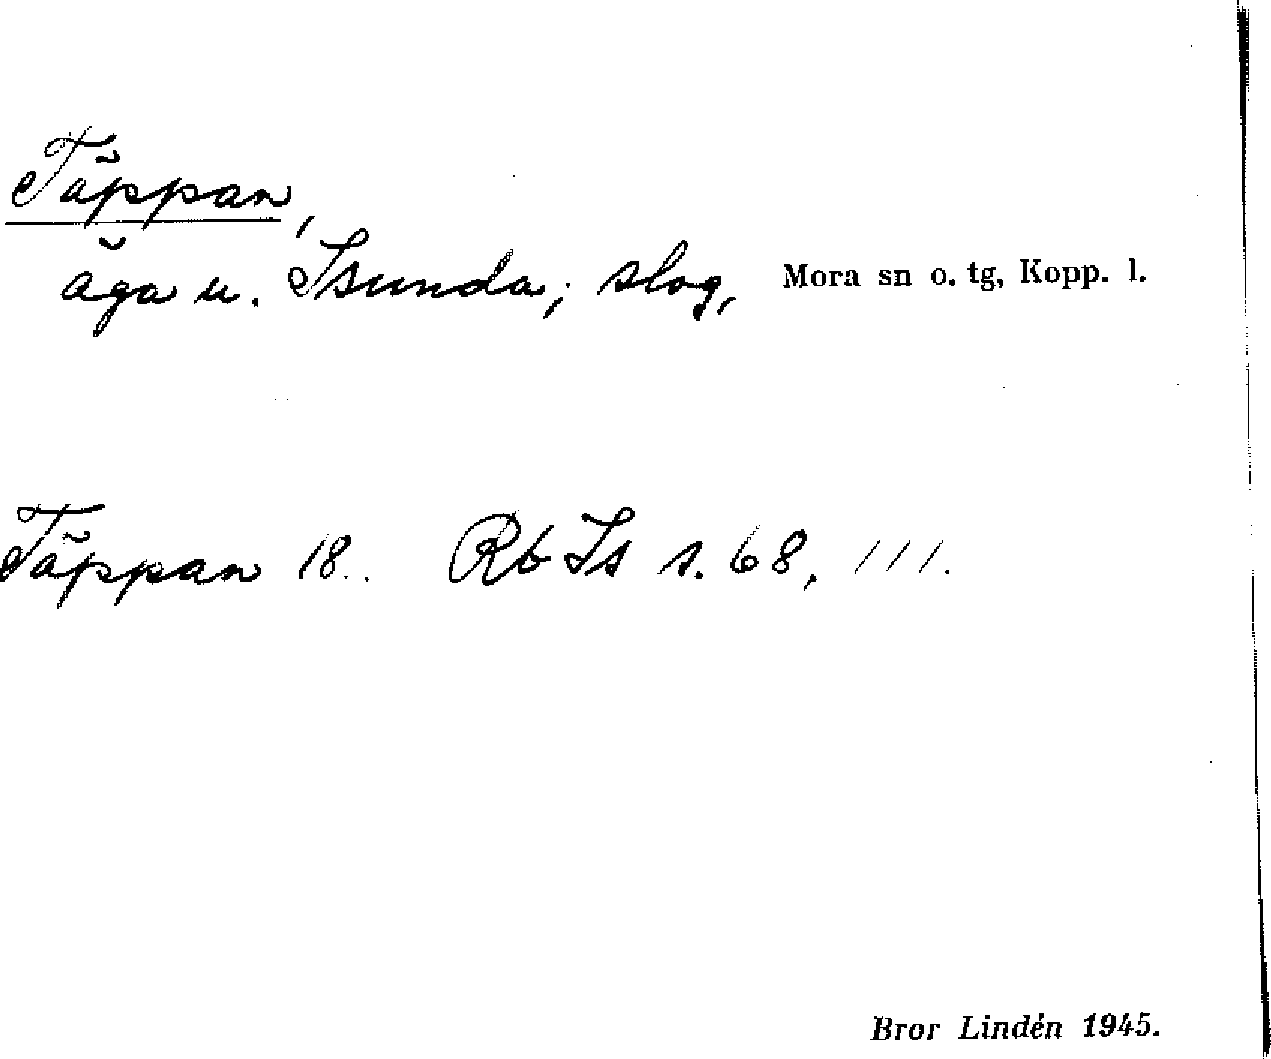 Täppan,
äga u. Isunda; slog, Mora sn o. tg, Kopp. l.
Täppan 18.. Rb Is s. 68, 111.
Bror Lindén 1945.